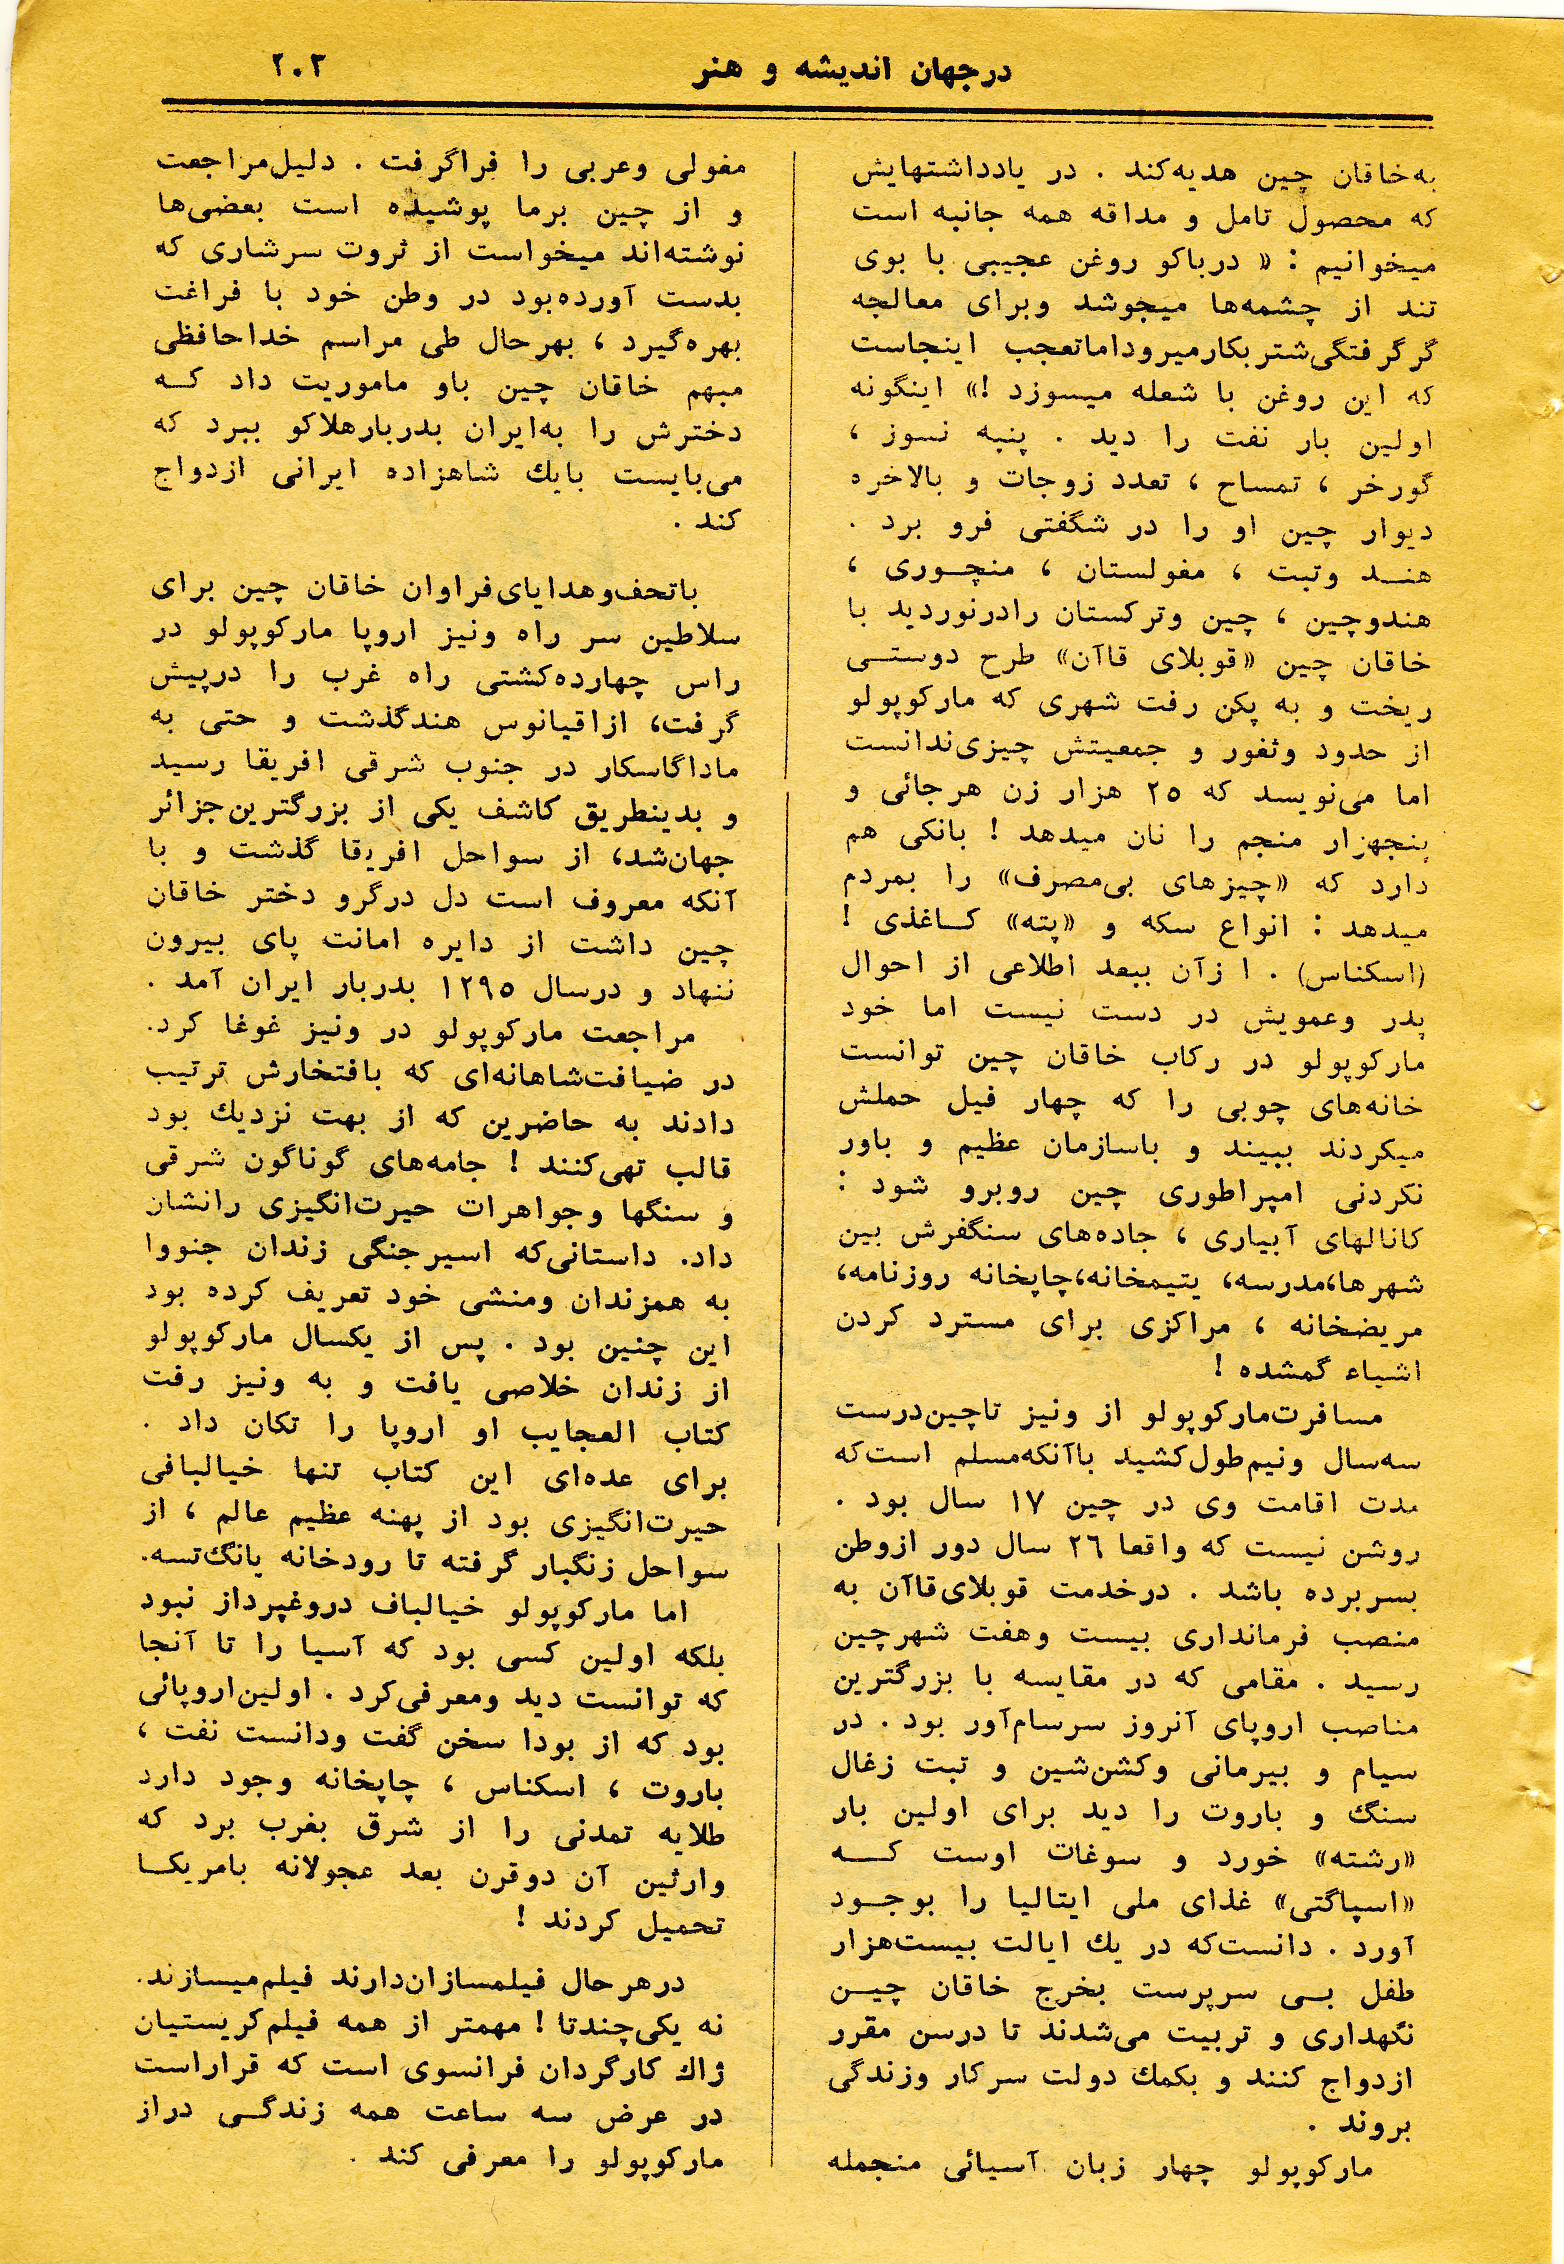 درجهان اندیشه و هنر
۲۰۳
به‌خاقان چین هدیه‌کند . در یادداشتهایش
که محصول تامل و مداقه همه جانبه است
میخوانیم : « درباکو روغن عجیبی با بوی
تند از چشمه‌ها میجوشد وبرای معالجه
گرگرفتگی‌شتربکارمیرود‌اماتعجب اینجاست
که این روغن با شعله میسوزد !» اینگونه
اولین بار نفت را دید . پنبه نسوز ،
گورخر ، تمساح ، تعدد زوجات و بالاخره
دیوار چین او را در شگفتی فرو برد .
هنـد وتبت ، مغولستان ، منچـوری ،
هندوچین ، چین وترکستان رادرنوردید با
خاقان چین «قوبلای قاآن» طرح دوستـی
ریخت و به پکن رفت شهری که مارکوپولو
از حدود وثغور و جمعیتش چیزی‌ندانست
اما می‌نویسد که ۲۵ هزار زن هرجائی و
پنجهزار منجم را نان میدهد ! بانکی هم
دارد که «چیزهای بی‌مصرف» را بمردم
میدهد : انواع سکه و «پته» کـاغذی !
(اسکناس) . ا زآن ببعد اطلاعی از احوال
پدر وعمویش در دست نیست اما خود
مارکوپولو در رکاب خاقان چین توانست
خانه‌های چوبی را که چهار فیل حملش
میکردند ببیند و باسازمان عظیم و باور
نکردنی امپراطوری چین روبرو شود :
کانالهای آبیاری ، جاده‌های سنگفرش بین
شهرها،مدرسه، یتیمخانه،چاپخانه روزنامه،
مریضخانه ، مراکزی برای مسترد کردن
اشیاء گمشده !
مسافرت‌مارکوپولو از ونیز تاچین‌درست
سه‌سال ونیم‌طول‌کشید باآنکه‌مسلم است‌که
مدت اقامت وی در چین ۱۷ سال بود .
روشن نیست که واقعا ۲۶ سال دور ازوطن
بسربرده باشد . درخدمت قوبلای‌قاآن به
منصب فرمانداری بیست وهفت شهرچین
رسید . مقامی که در مقایسه با بزرگترین
مناصب اروپای آنروز سرسام‌آور بود . در
سیام و بیرمانی وکشن‌شین و تبت زغال
سنگ و باروت را دید برای اولین بار
«رشته» خورد و سوغات اوست کـــه
«اسپاگتی» غذای ملی ایتالیا را بوجـود
آورد . دانست‌که در یك ایالت بیست‌هزار
طفل بـی سرپرست بخرج خاقان چیـن
نگهداری و تربیت می‌شدند تا درسن مقرر
ازدواج کنند و بکمك دولت سرکار وزندگی
بروند .
مارکوپولو چهار زبان آسیائی منجمله
مغولی وعربی را فراگرفت . دلیل‌مراجعت
و از چین برما پوشیده است بعضی‌ها
نوشته‌اند میخواست از ثروت سرشاری که
بدست آورده‌بود در وطن خود با فراغت
بهره‌گیرد ، بهرحال طی مراسم خداحافظی
مبهم خاقان چین باو ماموریت داد کـه
دخترش را به‌ایران بدربارهلاکو ببرد که
می‌بایست بایك شاهزاده ایرانی ازدواج
کند .
باتحف‌وهدایای‌فراوان خاقان چین برای
سلاطین سر راه ونیز اروپا مارکوپولو در
راس چهارده‌کشتی راه غرب را درپیش
گرفت، ازاقیانوس هندگذشت و حتی به
ماداگاسکار در جنوب شرقی افریقا رسید
و بدینطریق کاشف یکی از بزرگترین‌جزائر
جهان‌شد، از سواحل افریقا گذشت و با
آنکه معروف است دل درگرو دختر خاقان
چین داشت از دایره امانت پای بیرون
ننهاد و درسال ۱۲۹۵ بدربار ایران آمد .
مراجعت مارکوپولو در ونیز غوغا کرد.
در ضیافت‌شاهانه‌ای که بافتخارش ترتیب
دادند به حاضرین که از بهت نزدیك بود
قالب تهی‌کنند ! جامه‌های گوناگون شرقی
و سنگها وجواهرات حیرت‌انگیزی رانشان
داد. داستانی‌که اسیرجنگی زندان جنووا
به همزندان ومنشی خود تعریف کرده بود
این چنین بود . پس از یکسال مارکوپولو
از زندان خلاصی یافت و به ونیز رفت
کتاب العجایب او اروپا را تکان داد .
برای عده‌ای این کتاب تنها خیالبافی
حیرت‌انگیزی بود از پهنه عظیم عالم ، از
سواحل زنگبار گرفته تا رودخانه یانگ‌تسه.
اما مارکوپولو خیالباف دروغپرداز نبود
بلکه اولین کسی بود که آسیا را تا آنجا
که توانست دید ومعرفی‌کرد . اولین‌اروپائی
بود که از بودا سخن گفت ودانست نفت ،
باروت ، اسکناس ، چاپخانه وجود دارد
طلایه تمدنی را از شرق بغرب برد که
وارثین آن دوقرن بعد عجولانه بامریکـا
تحمیل کردند !
درهرحال فیلمسازان‌دارند فیلم‌میسازند.
نه یکی‌چندتا ! مهمتر از همه فیلم‌کریستیان
ژاك کارگردان فرانسوی است که قراراست
در عرض سه ساعت همه زندگـی دراز
مارکوپولو را معرفی کند .